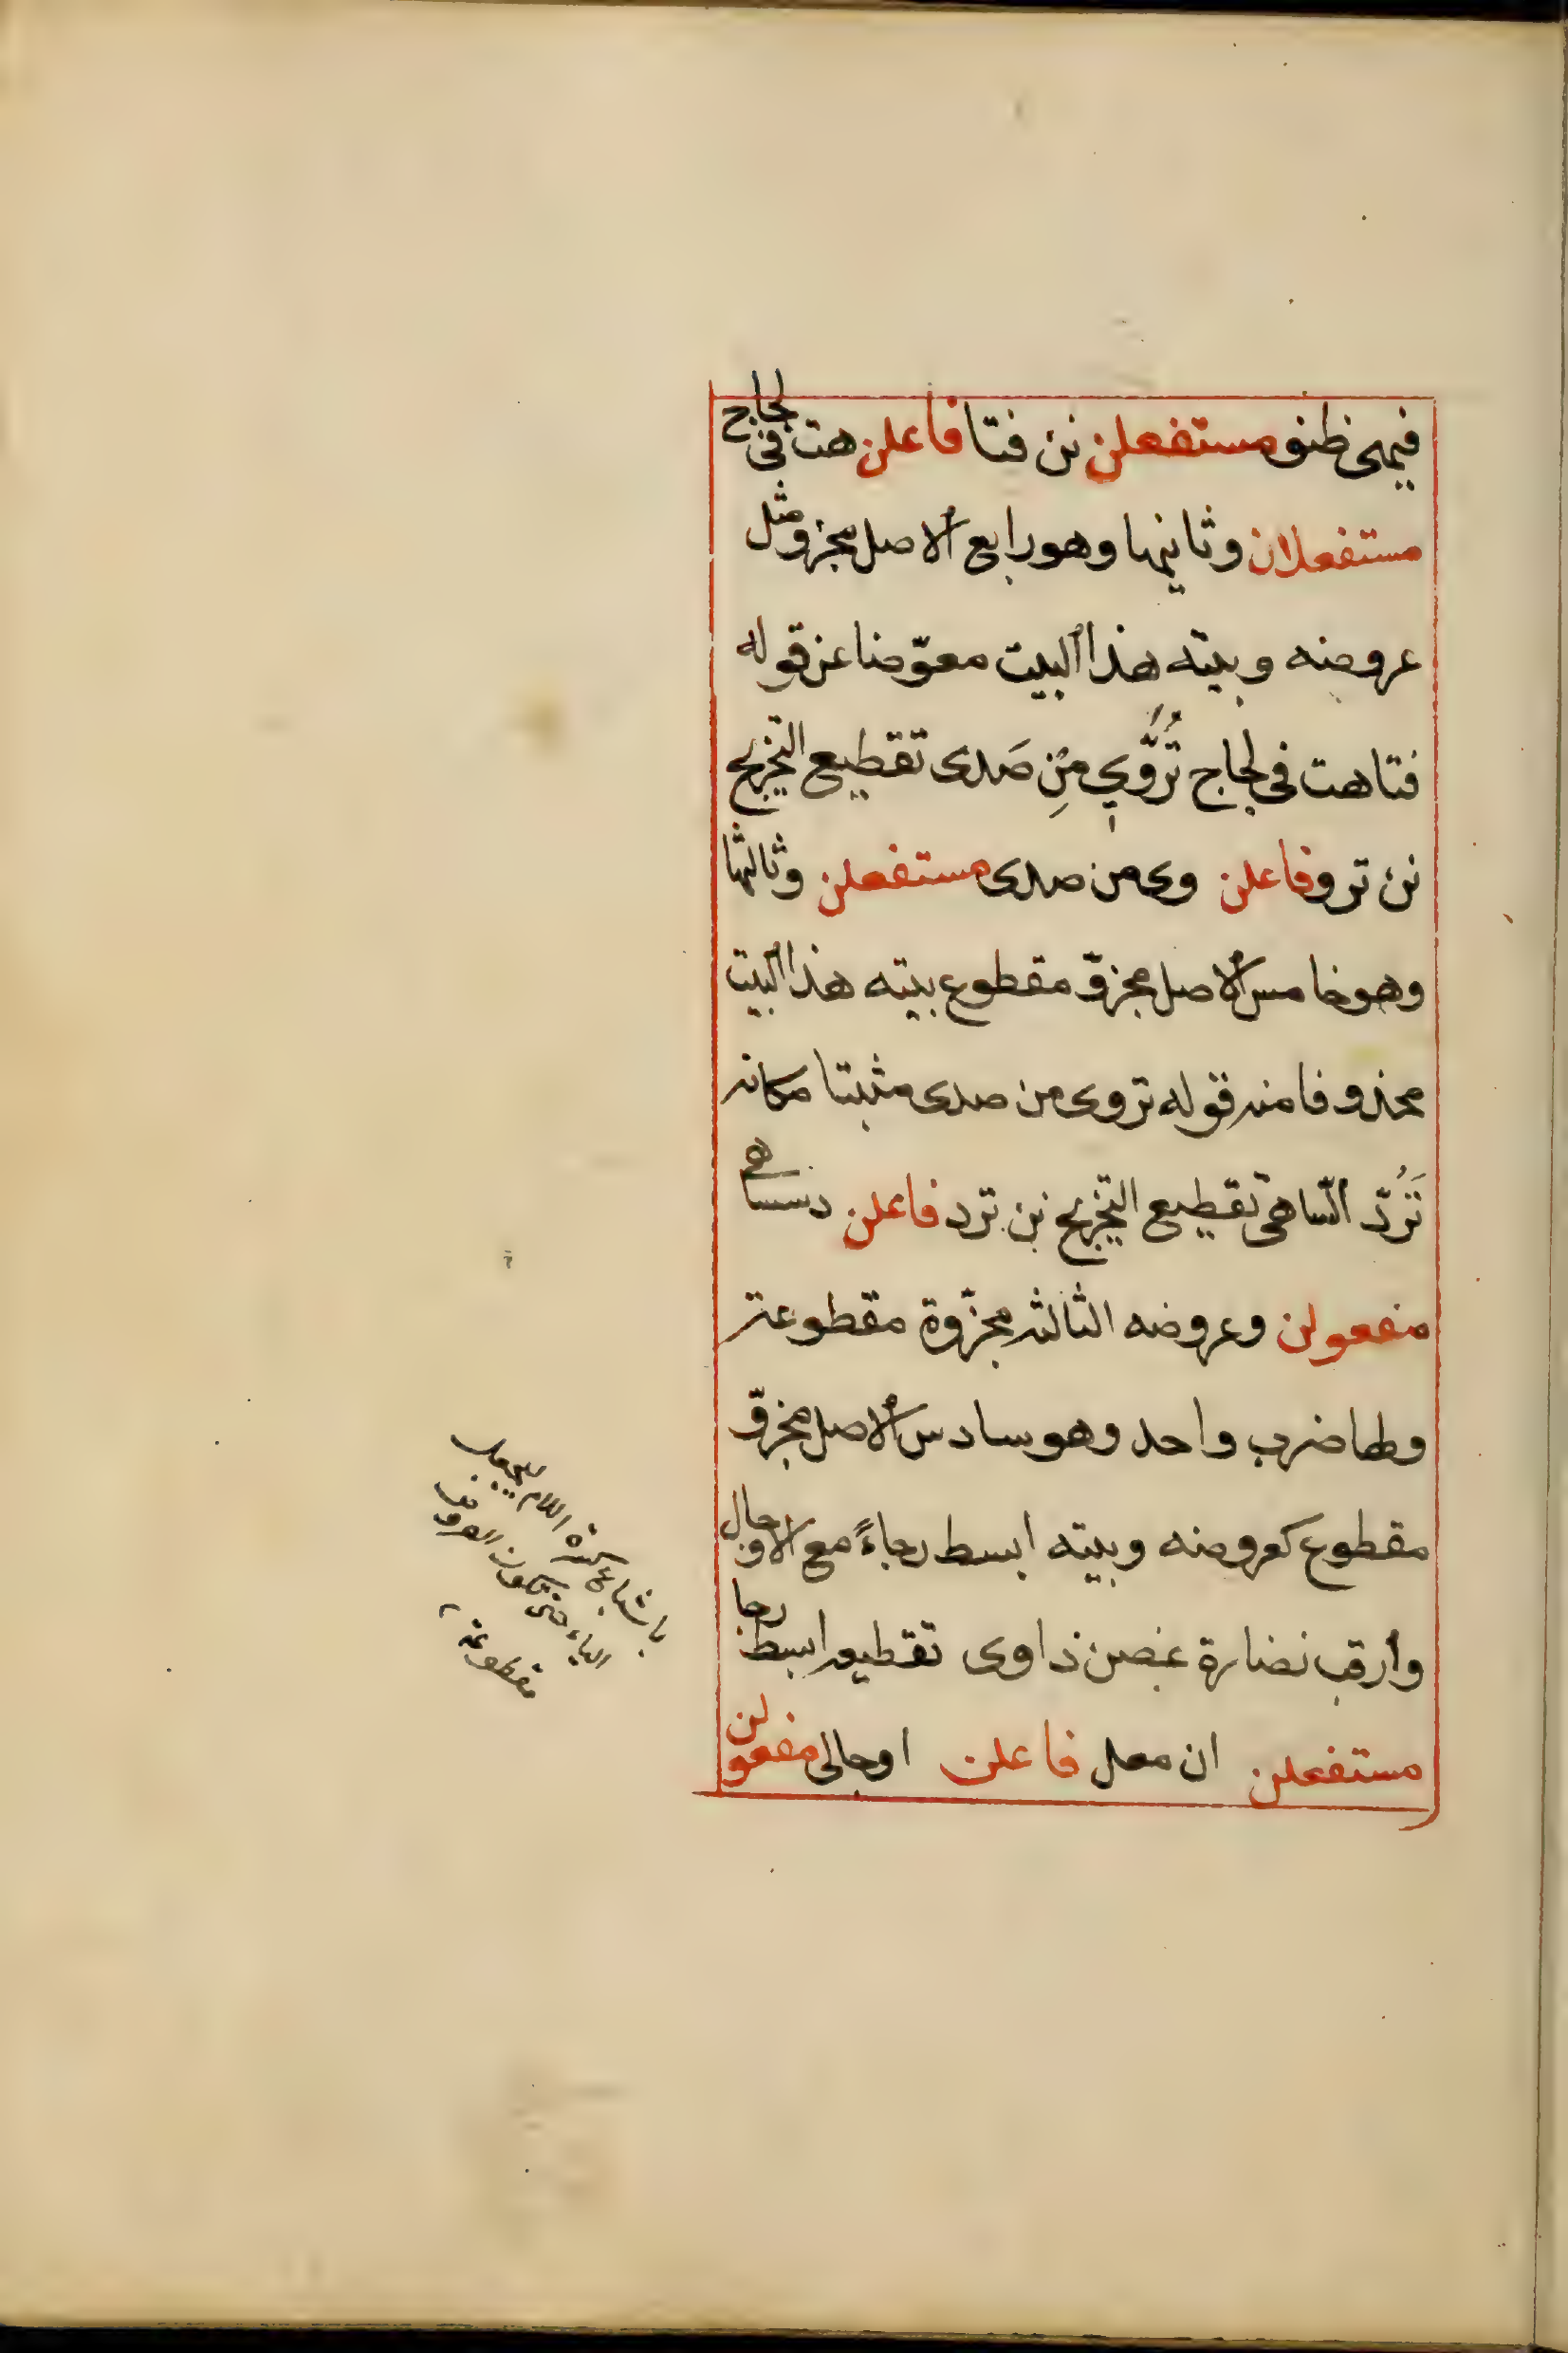 فيمهى ظنو مستفعلن نن فتا فاعلن هت فى لجاج
مستفعلان وثانيها وهو رابع الاصل مجزو مثل
عروضه وبيته هذا البيت معوّضا عن قوله
فتاهت فى لجاج تُرَوِّي مِن صَدى تقطيع التخريج
نن ترو فاعلن وى من صدى مستفعلن وثالثها
وهو خامس الاصل مجزوّ مقطوع بيته هذا البيت
محذوفا منه قوله تروى من صدى مثبتا مكانه
تَرُدّ السّاهى تقطيع التخريج نن ترد فاعلن دسساهى
مفعولن وعروضه الثالثه مجزّوة مقطوعة
ولها ضرب واحد وهو سادس الاصل مجزوّ
مقطوع كعروضه وبيته ابسط رجاءً مع الاوجال
وارقب نضارة غصن ذاوى تقطيعه ابسط رجا
مستفعلن ان معل فاعلن اوجالى مفعولن
باشباع كسرة اللام ليجلب
الياء حتى تكون العروض
مقطوعة